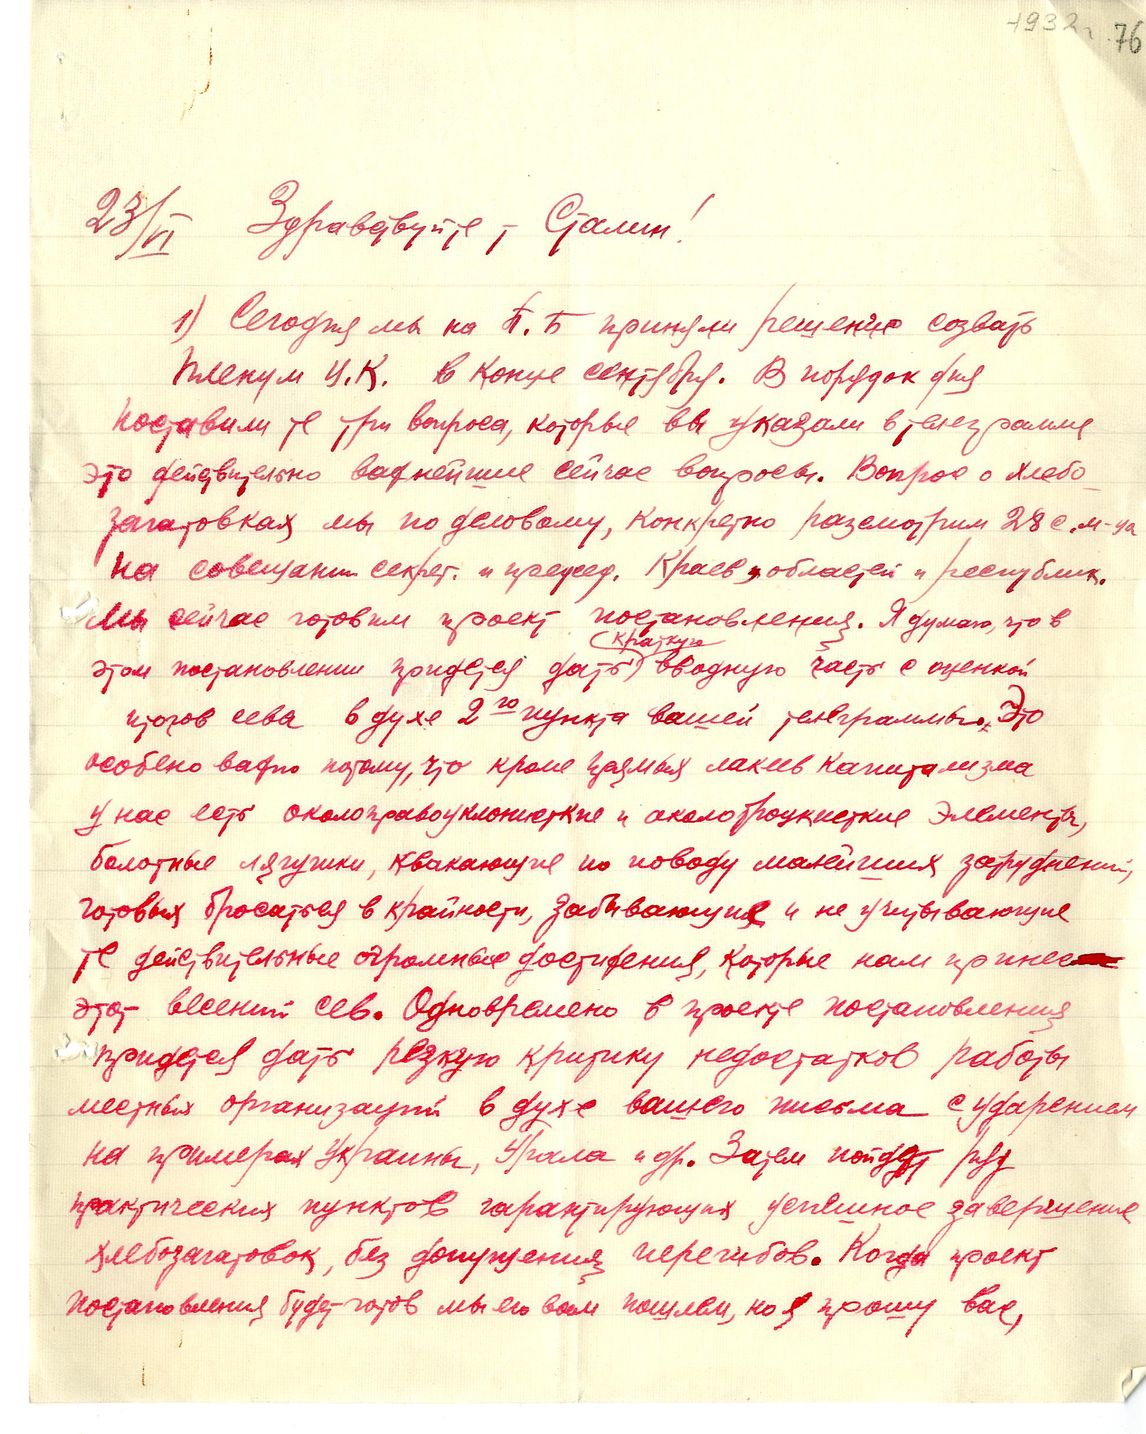 1932 г. 76
23/VI Здравствуйте т Сталин!
1) Сегодня мы на П.Б приняли решение созвать
Пленум Ц.К. в конце сентября. В порядок дня
поставили те три вопроса, которые вы указали в телеграмме
это действительно важнейшие сейчас вопросы. Вопрос о хлебо-
загатовках мы по деловому, конкретно разсмотрим 28 с. м-ца
на совещании секрет. и председ. Краев, областей и республик.
Мы сейчас готовим проект постановления. Я думаю, что в
(краткую
этом постановлении придется дать) вводную часть с оценкой
итогов сева в духе 2го пункта вашей телеграммы. Это
особено важно потому, что кроме прямых лакеев капитализма
у нас есть околоправоуклонисткие и аколотроцкисткие элементы,
болотные лягушки, квакающие по поводу малейших затруднений,
готовых бросаться в крайности, забывающие и не учитывающие
те действительные огромные достижения, которые нам принес
этот весений сев. Одновремено в проекте постановления
придется дать резкую критику недостатков работы
местных организаций в духе вашего письма с ударением
на примерах Украины, Урала и др. Затем пойдут ряд
практических пунктов гарантирующих успешное завершение
хлебозагатовок, без допущения перегибов. Когда проект
постановления будет готов мы его вам пошлем, но я прошу вас,